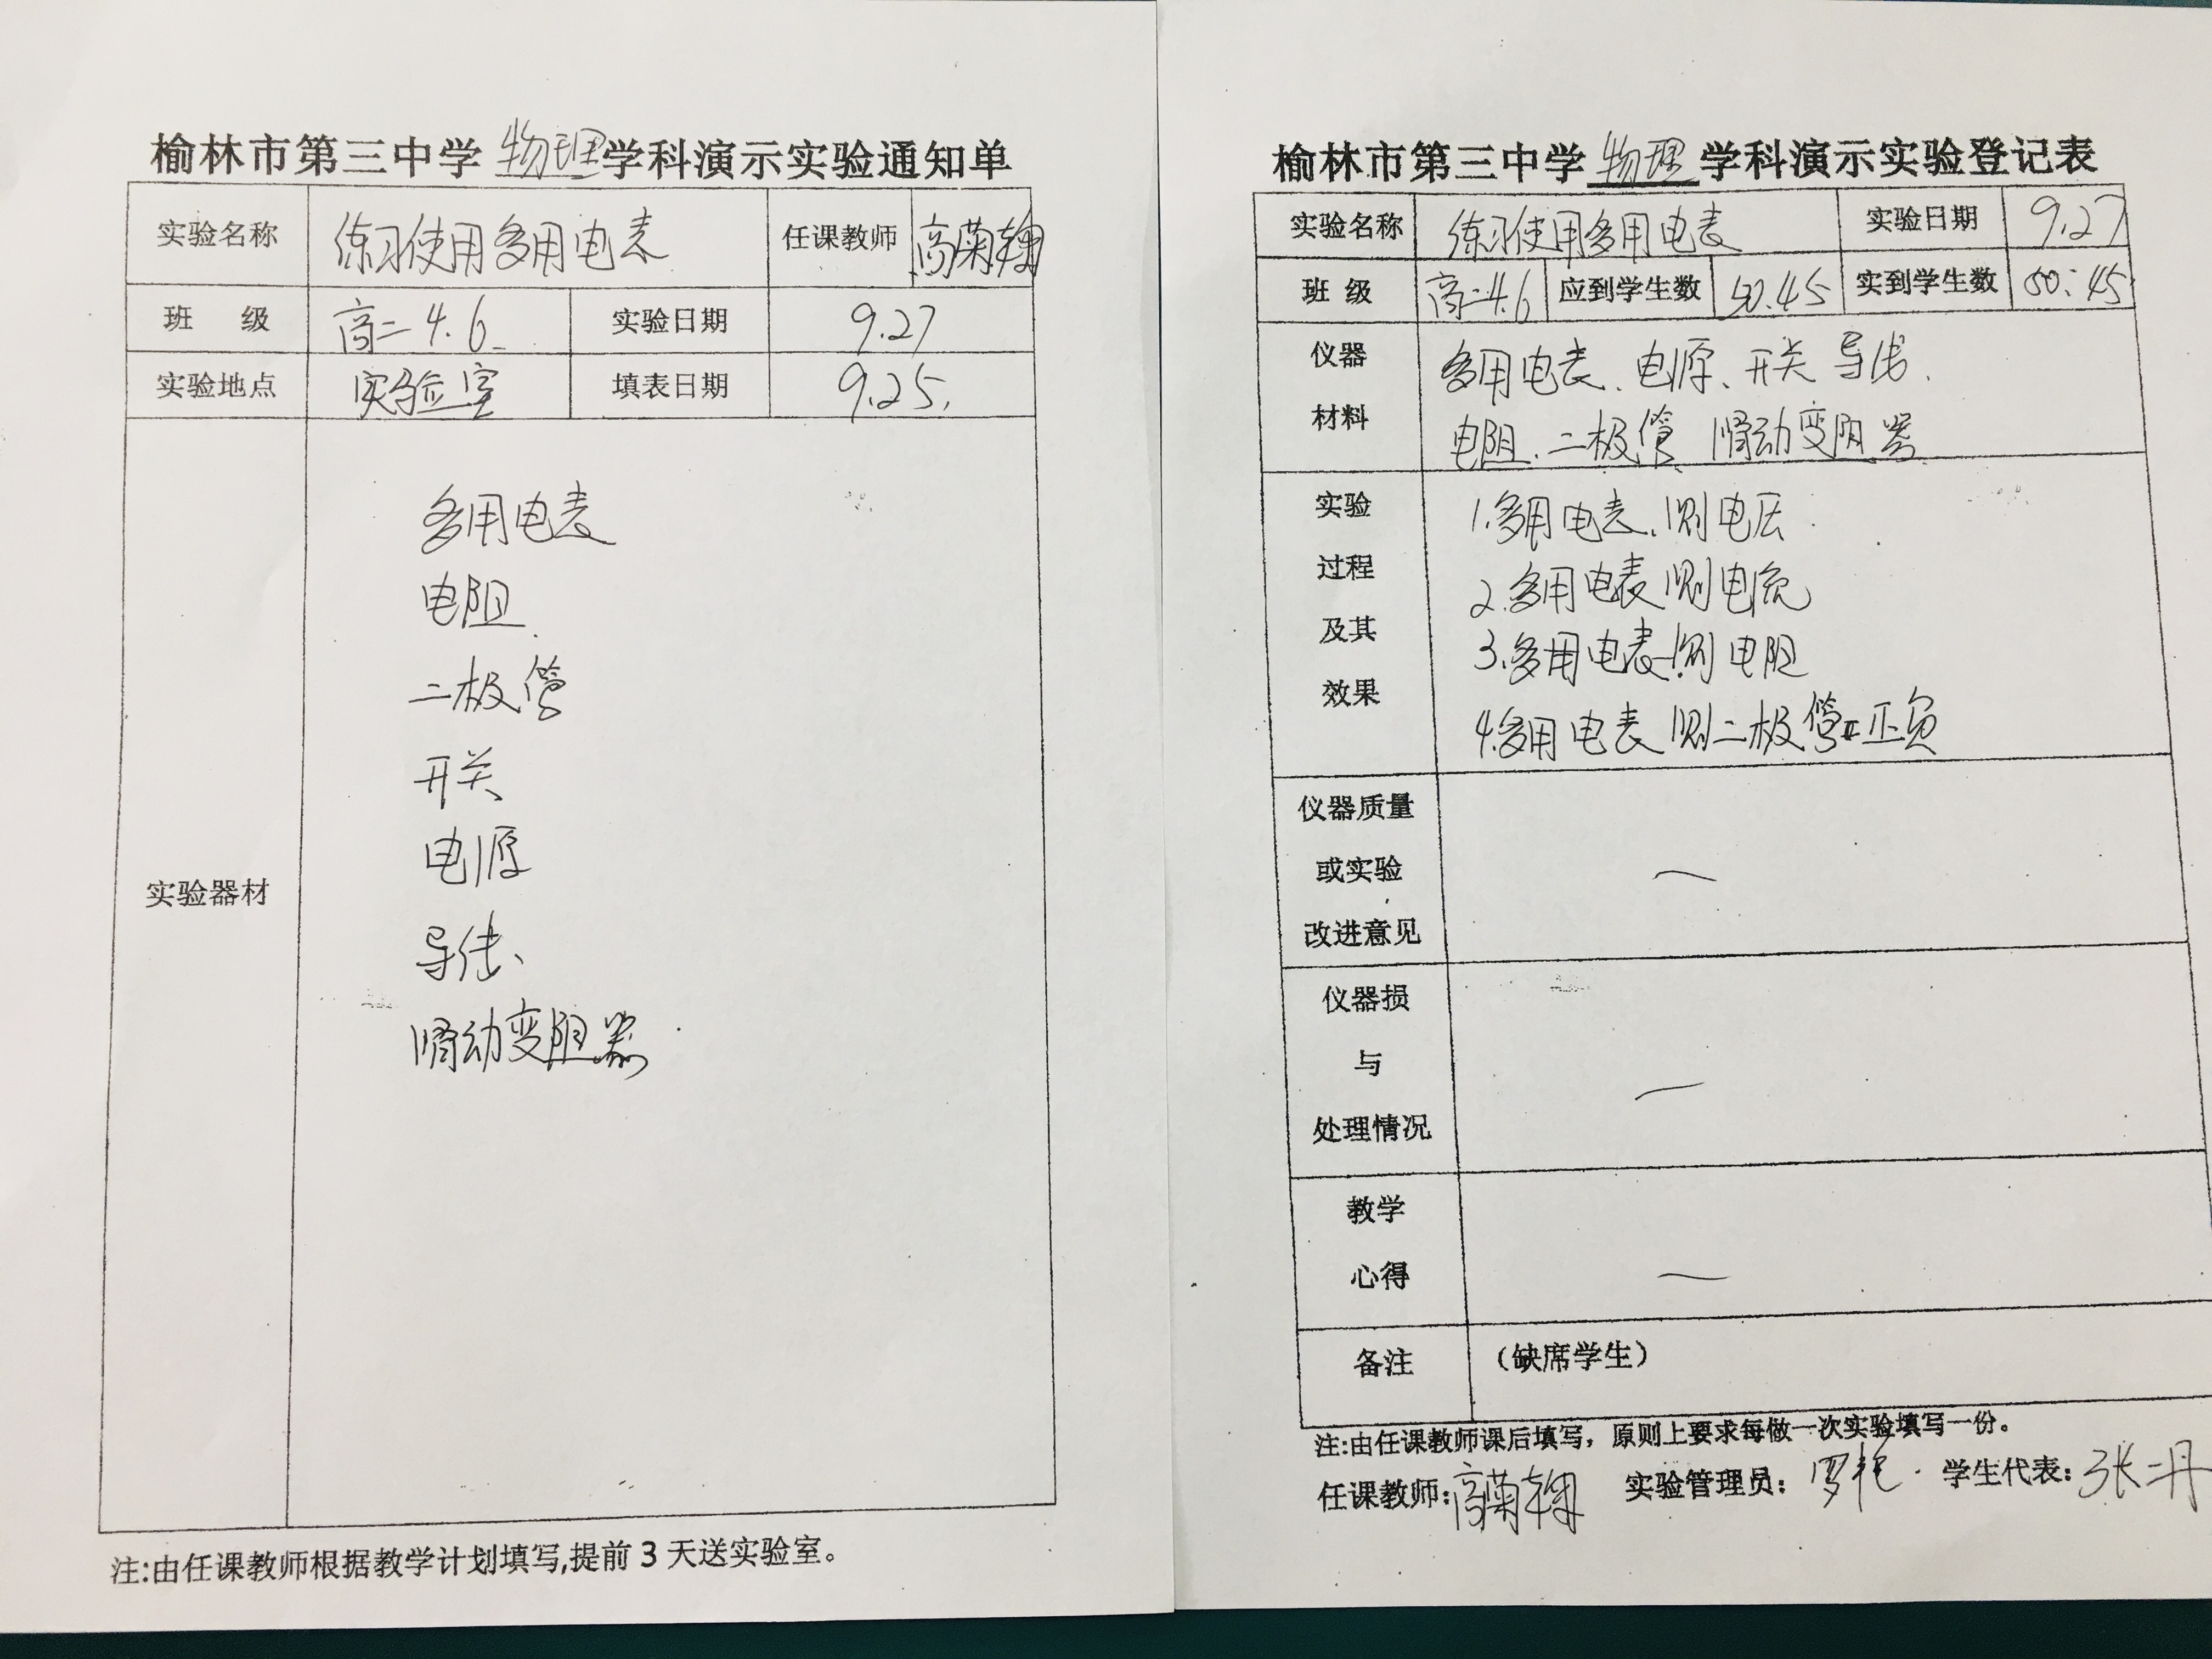 榆林市第三中学 物理 学科演示实验通知单
实验名称 练习使用多用电表 任课教师 高菊翔
班 级 高二4.6 实验日期 9.27
实验地点 实验室 填表日期 9.25.
实验器材
多用电表
电阻
二极管
开关
电源
导线、
滑动变阻器
注:由任课教师根据教学计划填写,提前3天送实验室。
榆林市第三中学 物理 学科演示实验登记表
实验名称 练习使用多用电表 实验日期 9.27
班 级 高二4.6 应到学生数 50.45 实到学生数 50:45
仪器材料
多用电表、电源、开关 导线、
电阻、二极管 滑动变阻器
实验过程及其效果
1.多用电表、测电压
2.多用电表测电流
3.多用电表测电阻
4.多用电表测二极管正负
仪器质量或实验改进意见 —
仪器损与处理情况 —
教学心得 —
备注 (缺席学生)
注:由任课教师课后填写，原则上要求每做一次实验填写一份。
任课教师: 高菊翔 实验管理员: 罗艳 学生代表: 张二丹